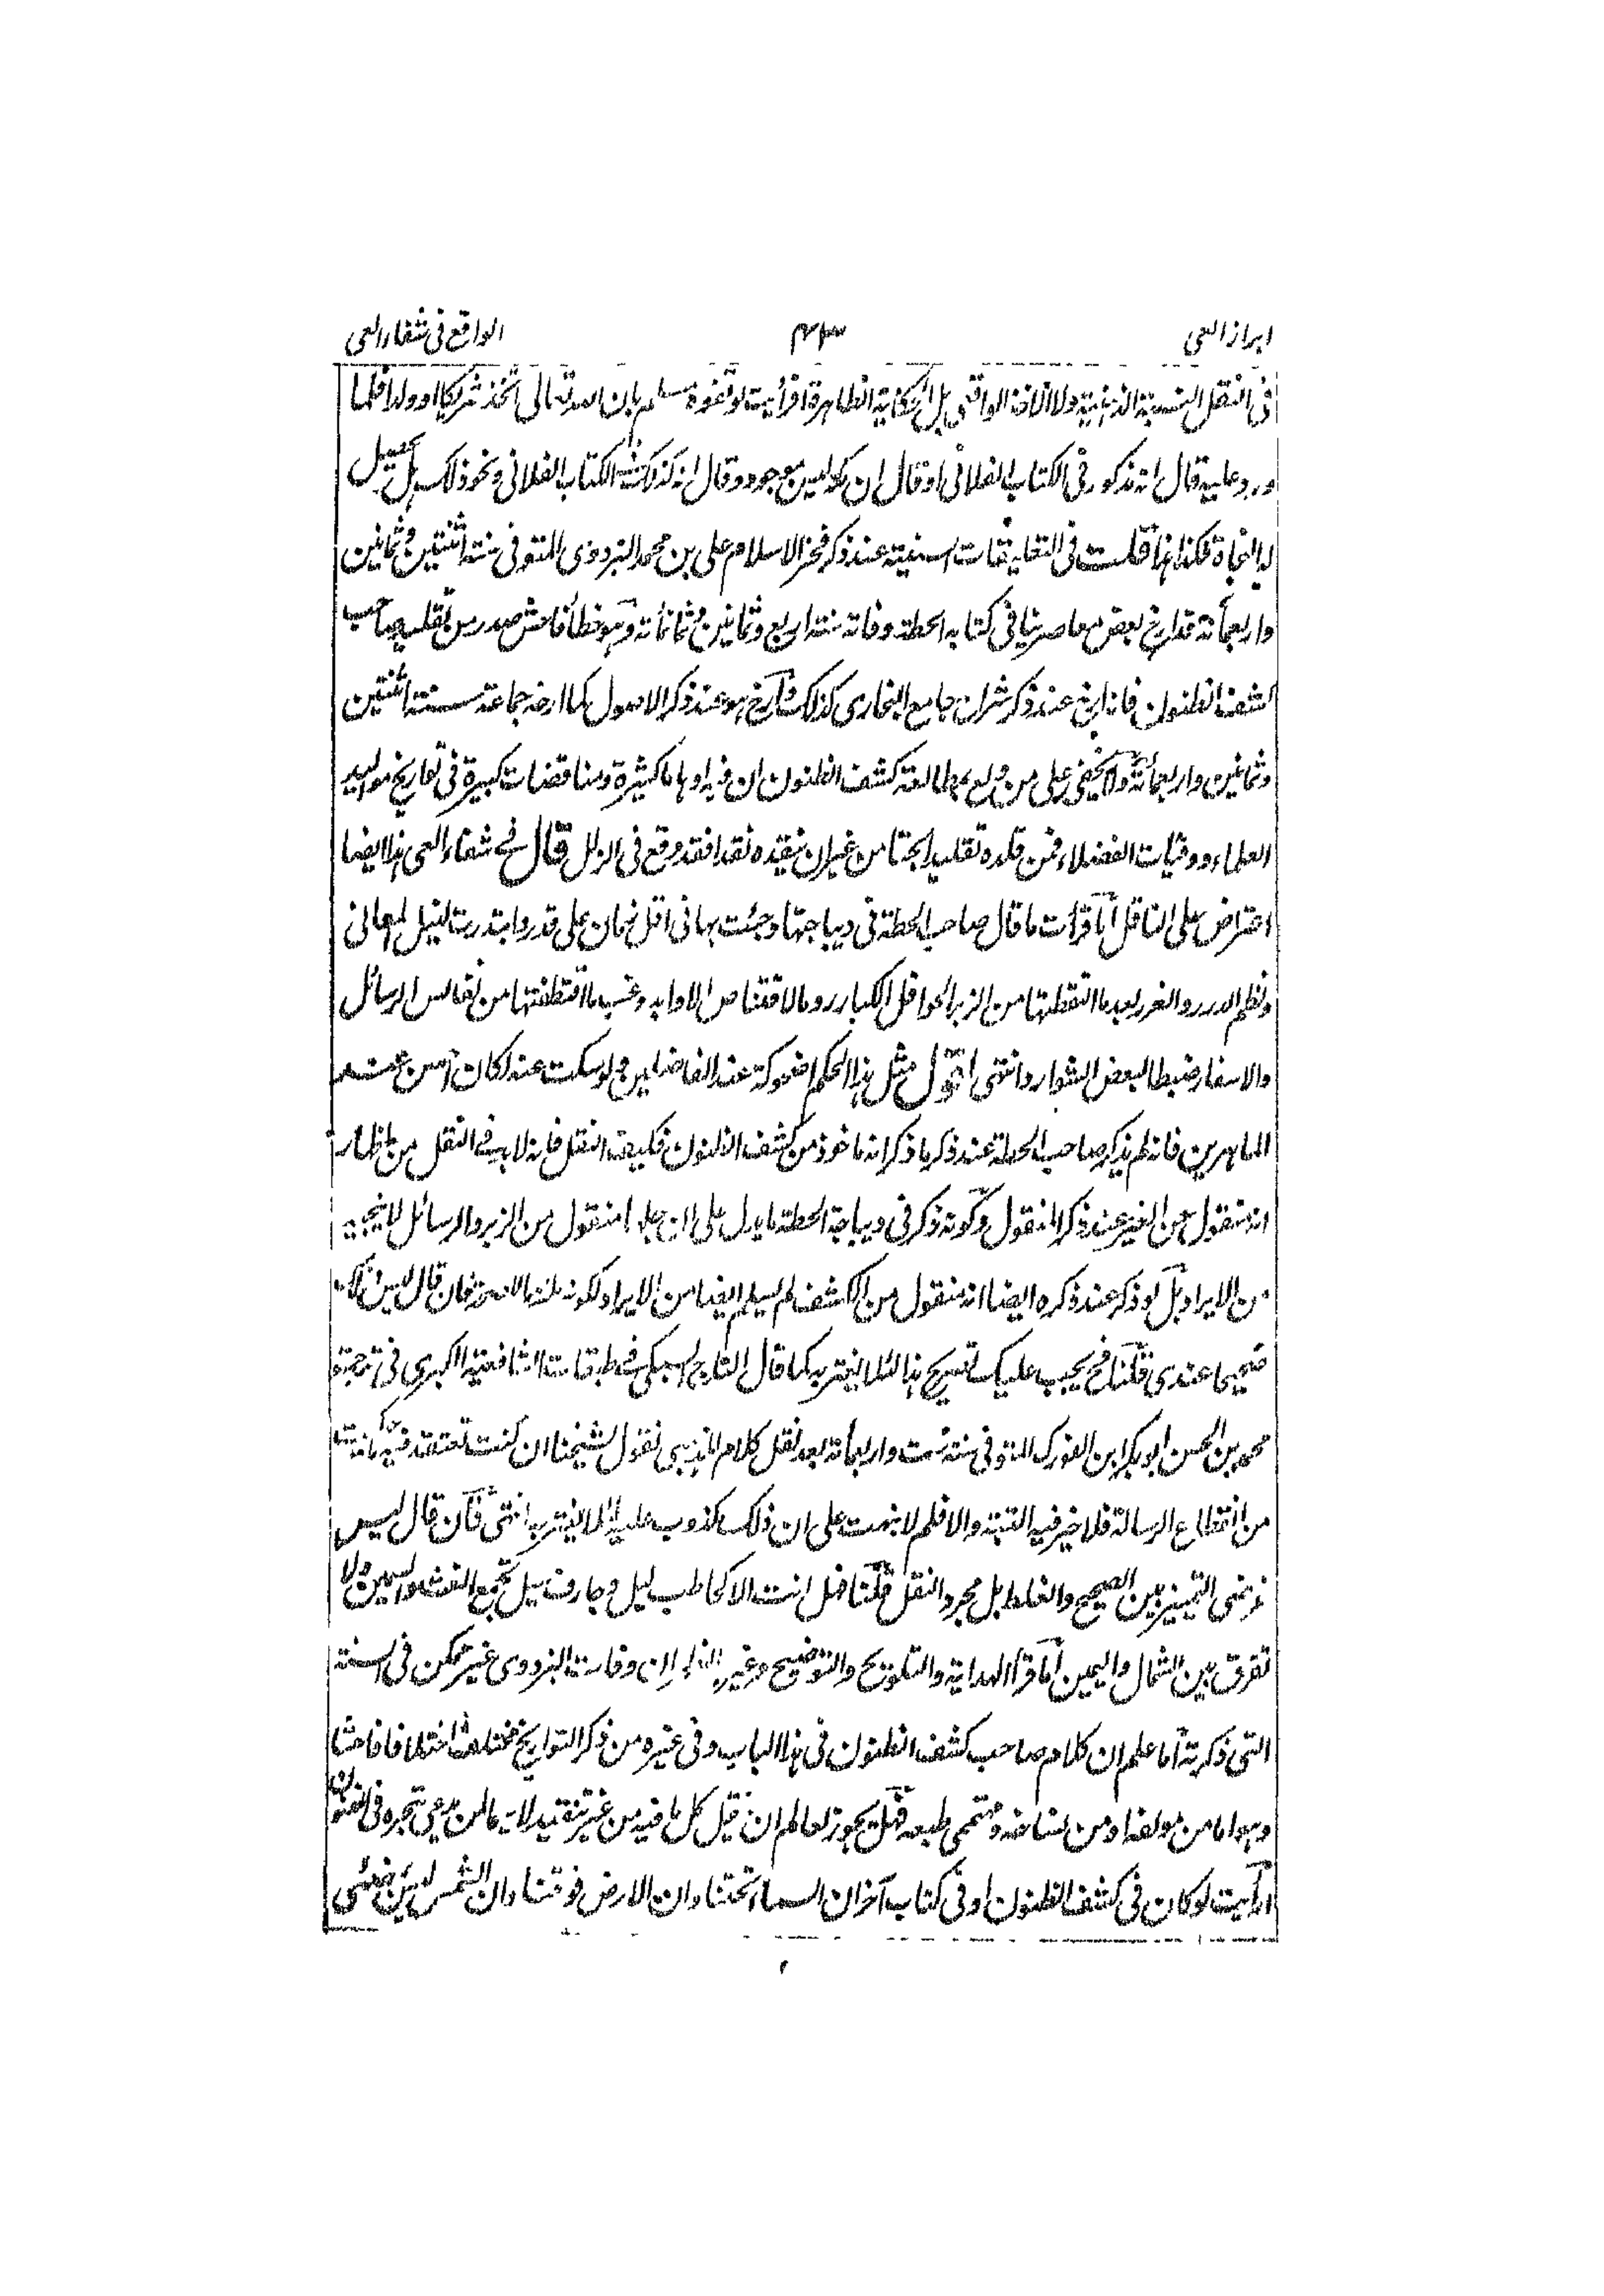 ابراز الغى
الواقع فى شفاء العى
فى النقل النسبة الذهنية ولا الاضافة الواقعى بل الحكاية الظاهرة افرأيت لو تفوه مسلم بان الله تعالى اتخذ شريكا او ولدا فلما
ورد عليه قال انه مذكور فى الكتاب الفلانى او قال ان بموجود وقال انه كذلك فى الكتاب الفلانى ونحو ذلك هل يحصل
له النجاة فكذا هذا قلت فى التعليقات السنية عند ذكر فخر الاسلام على بن محمد البزدوى المتوفى سنة اثنتين وثمانين
واربعمائة قد ارخ بعض معاصرينا فى كتابه الحطة وفاته سنة اربع وثمانين وثمانمائة وهو خطأ فاحش صدر من تقليد صاحب
كشف الظنون فانه ارخ عند ذكر شراح جامع البخارى كذلك وارخ هو عند ذكر الاصول كما ارخه جماعة سنة اثنتين
وثمانين واربعمائة ولا يخفى على من ولع بمطالعة كشف الظنون ان فيه اوهاما كثيرة ومناقضات كبيرة فى تواريخ مواليد
العلماء ووفيات الفضلاء فمن قلده تقليدا بحتا من غير ان ينقده نقدا فقد وقع فى الزلل قال فى شفاء العى هذا ايضا
اعتراض على الناقل أما قرأت ما قال صاحب الحطة فى ديباجتها وجئت بها فى اقل زمان على قدر وابتدرت لنيل المعانى
ونظم الدرر والغرر بعد ما التقطتها من الزبر الحوافل الكبار روما لاقتناص الاوابد وغب ما اقتطفتها من نفائس الرسائل
والاسفار ضبطا لبعض الشوارد انتهى اقول مثل هذا الحكم اضحوكة عند الفاضلين ولو سكت عنه لكان احسن عند
الماهرين فانه لم يذكر صاحب الحطة عند ذكر ما ذكر انه ماخوذ من كشف الظنون فكيف النقل فانه لا بد فى النقل من اظهار
انه منقول عن الغير عند ذكر المنقول وكونه ذكر فى ديباجة الحطة ما يدل على ان جلها منقول من الزبر والرسائل لا ينجيه
من الايراد بل لو ذكر عند ذكره ايضا انه منقول من الكشف لم يسلم ايضا من الايراد لكونه ملتزما لصحة فان قال ليس ذلك
صحيحا عندى قلنا فح يجب عليك تصريح هذا لئلا يغتر به كما قال التاج السبكى فى طبقات الشافعية الكبرى فى ترجمة
محمد بن الحسن ابو بكر ابن الفورك المتوفى سنة ست واربعمائة بعد نقل كلام الذهبى نقول لشيخنا ان كنت تعتقد فيه ما حكيت
من انقطاع الرسالة فلا خير فيه البتة والا فلم لا نبهت على ان ذلك مكذوب عليه لئلا يغتر به انتهى فان قال ليس
غرضى التمييز بين الصحيح والغلط بل مجرد النقل قلنا فهل انت الا كحاطب ليل وجارف سيل تجمع الغث والسمين ولا
تفرق بين الشمال واليمين أما قرأ الهداية والتلويح والتوضيح وغيرها ان وفاة البزدوى غير ممكن فى السنة
التى ذكرته أما علم ان كلام صاحب كشف الظنون فى هذا الباب وفى غيره من ذكر التواريخ مختلف اختلافا فاحشا
وهو اما من مؤلفه او من نساخه ومهتمى طبعه فهل يجوز لعالم ان يقبل كل ما فيه من غير تنقيد لاسيما لمن يدعى تبحره فى الفنون
ارأيت لو كان فى كشف الظنون او فى كتاب آخر ان السماء تحتنا وان الارض فوقنا وان الشمس ليس بمضئى